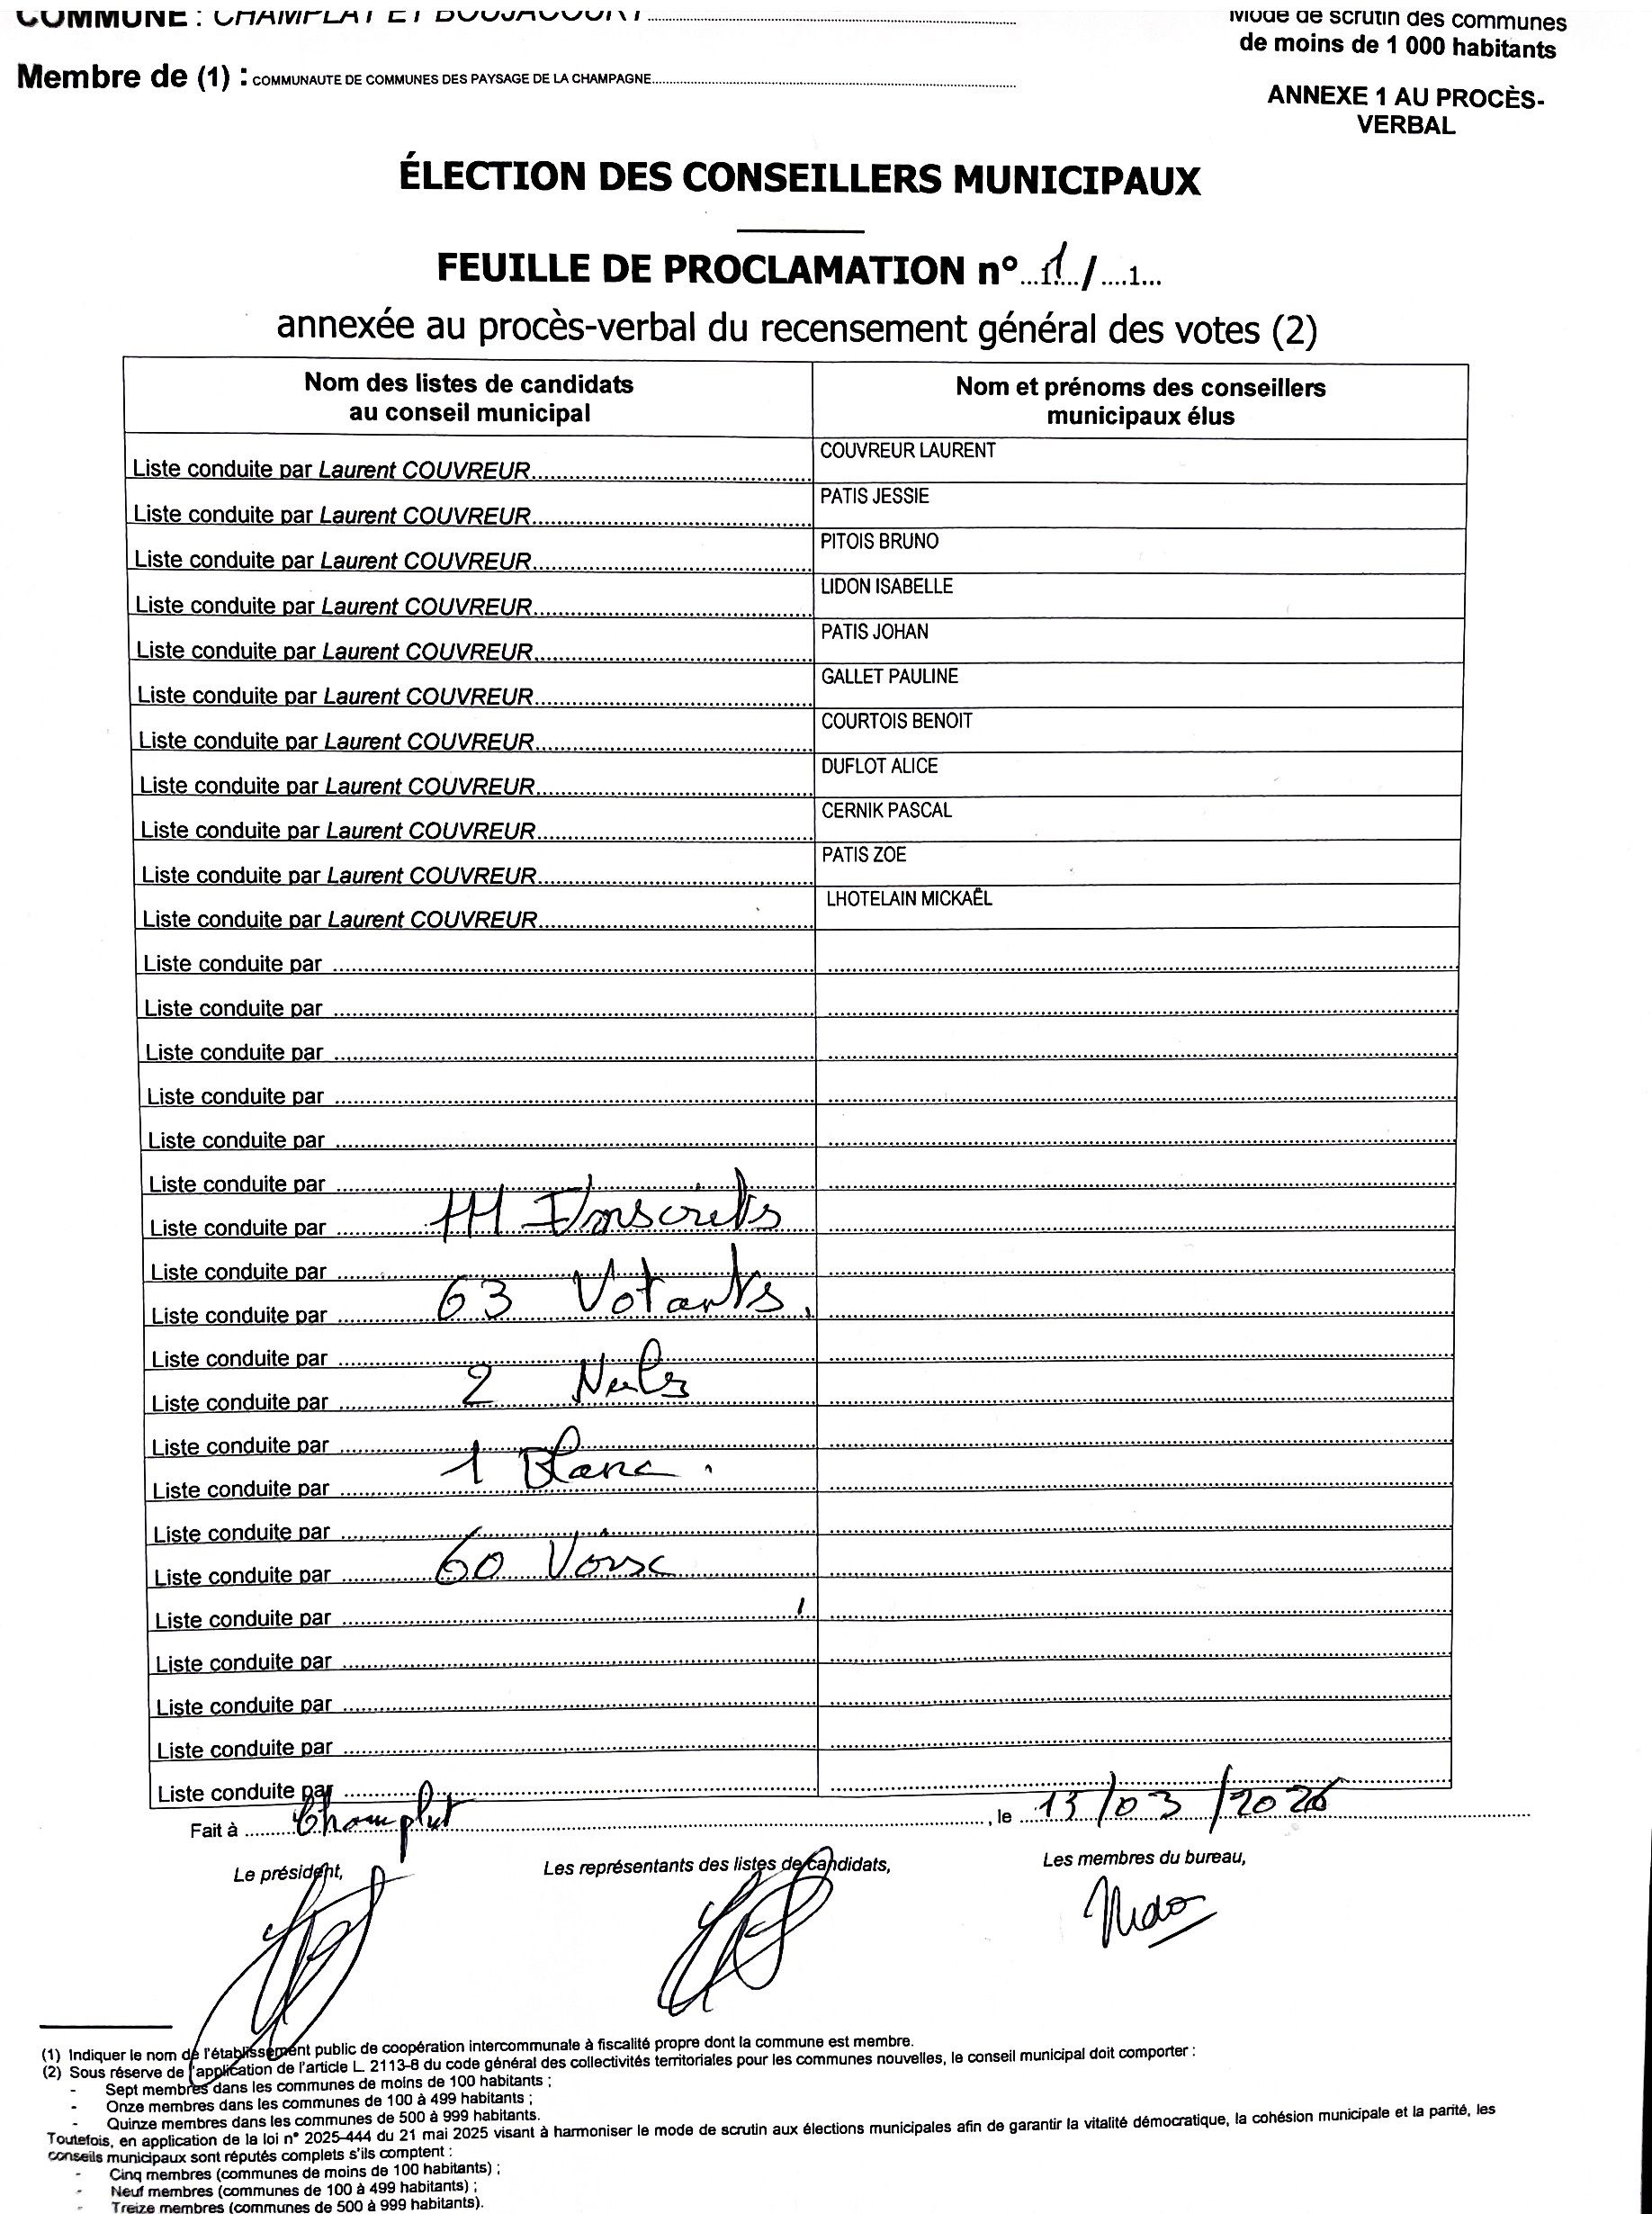 COMMUNE : CHAMPLAT ET BOUJACOURT
Mode de scrutin des communes
de moins de 1 000 habitants
Membre de (1) : COMMUNAUTE DE COMMUNES DES PAYSAGE DE LA CHAMPAGNE
ANNEXE 1 AU PROCÈS-
VERBAL
ÉLECTION DES CONSEILLERS MUNICIPAUX
FEUILLE DE PROCLAMATION n° 1 / 1
annexée au procès-verbal du recensement général des votes (2)
Nom des listes de candidats
au conseil municipal
Nom et prénoms des conseillers
municipaux élus
Liste conduite par Laurent COUVREUR
COUVREUR LAURENT
Liste conduite par Laurent COUVREUR
PATIS JESSIE
Liste conduite par Laurent COUVREUR
PITOIS BRUNO
Liste conduite par Laurent COUVREUR
LIDON ISABELLE
Liste conduite par Laurent COUVREUR
PATIS JOHAN
Liste conduite par Laurent COUVREUR
GALLET PAULINE
Liste conduite par Laurent COUVREUR
COURTOIS BENOIT
Liste conduite par Laurent COUVREUR
DUFLOT ALICE
Liste conduite par Laurent COUVREUR
CERNIK PASCAL
Liste conduite par Laurent COUVREUR
PATIS ZOE
Liste conduite par Laurent COUVREUR
LHOTELAIN MICKAËL
Liste conduite par
Liste conduite par
Liste conduite par
Liste conduite par
Liste conduite par
Liste conduite par
Liste conduite par 111 Inscrits
Liste conduite par
Liste conduite par 63 Votants.
Liste conduite par
Liste conduite par 2 Nuls
Liste conduite par
Liste conduite par 1 Blanc.
Liste conduite par
Liste conduite par 60 Voix
Liste conduite par
Liste conduite par
Liste conduite par
Liste conduite par
Liste conduite par
Fait à Champlat, le 15/03/2026
Le président,
Les représentants des listes de candidats,
Les membres du bureau,
(1) Indiquer le nom de l'établissement public de coopération intercommunale à fiscalité propre dont la commune est membre.
(2) Sous réserve de l'application de l'article L. 2113-8 du code général des collectivités territoriales pour les communes nouvelles, le conseil municipal doit comporter :
- Sept membres dans les communes de moins de 100 habitants ;
- Onze membres dans les communes de 100 à 499 habitants ;
- Quinze membres dans les communes de 500 à 999 habitants.
Toutefois, en application de la loi n° 2025-444 du 21 mai 2025 visant à harmoniser le mode de scrutin aux élections municipales afin de garantir la vitalité démocratique, la cohésion municipale et la parité, les
conseils municipaux sont réputés complets s'ils comptent :
- Cinq membres (communes de moins de 100 habitants) ;
- Neuf membres (communes de 100 à 499 habitants) ;
- Treize membres (communes de 500 à 999 habitants).